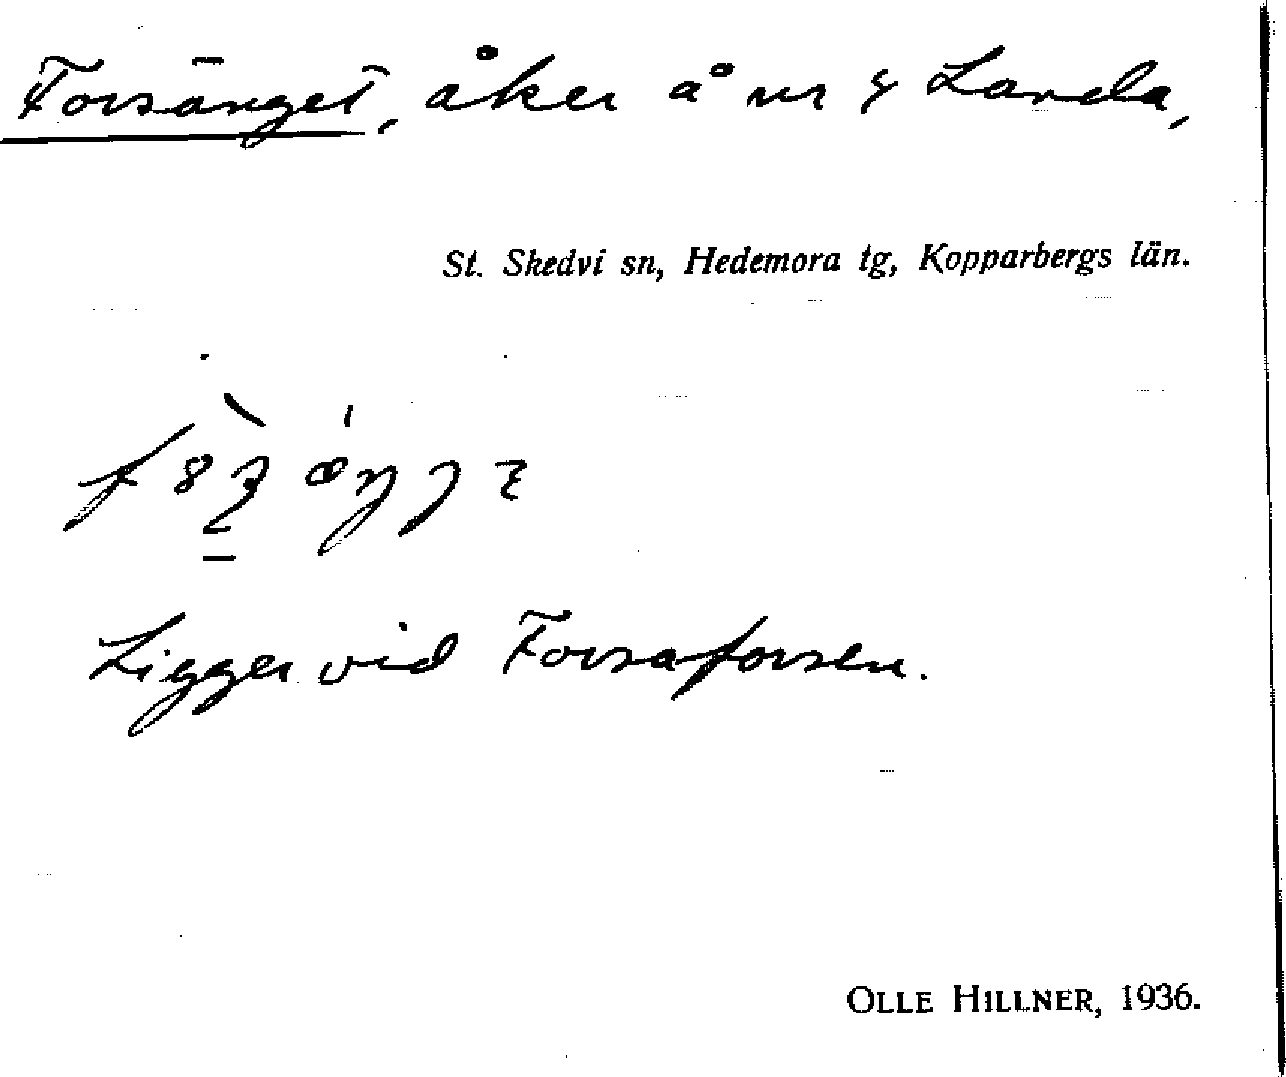 Forsänget, åker å nr 4 Landa,
St. Skedvi sn, Hedemora tg, Kopparbergs län.
Ligger vid Forsaforsen.
OLLE HILLNER, 1936.